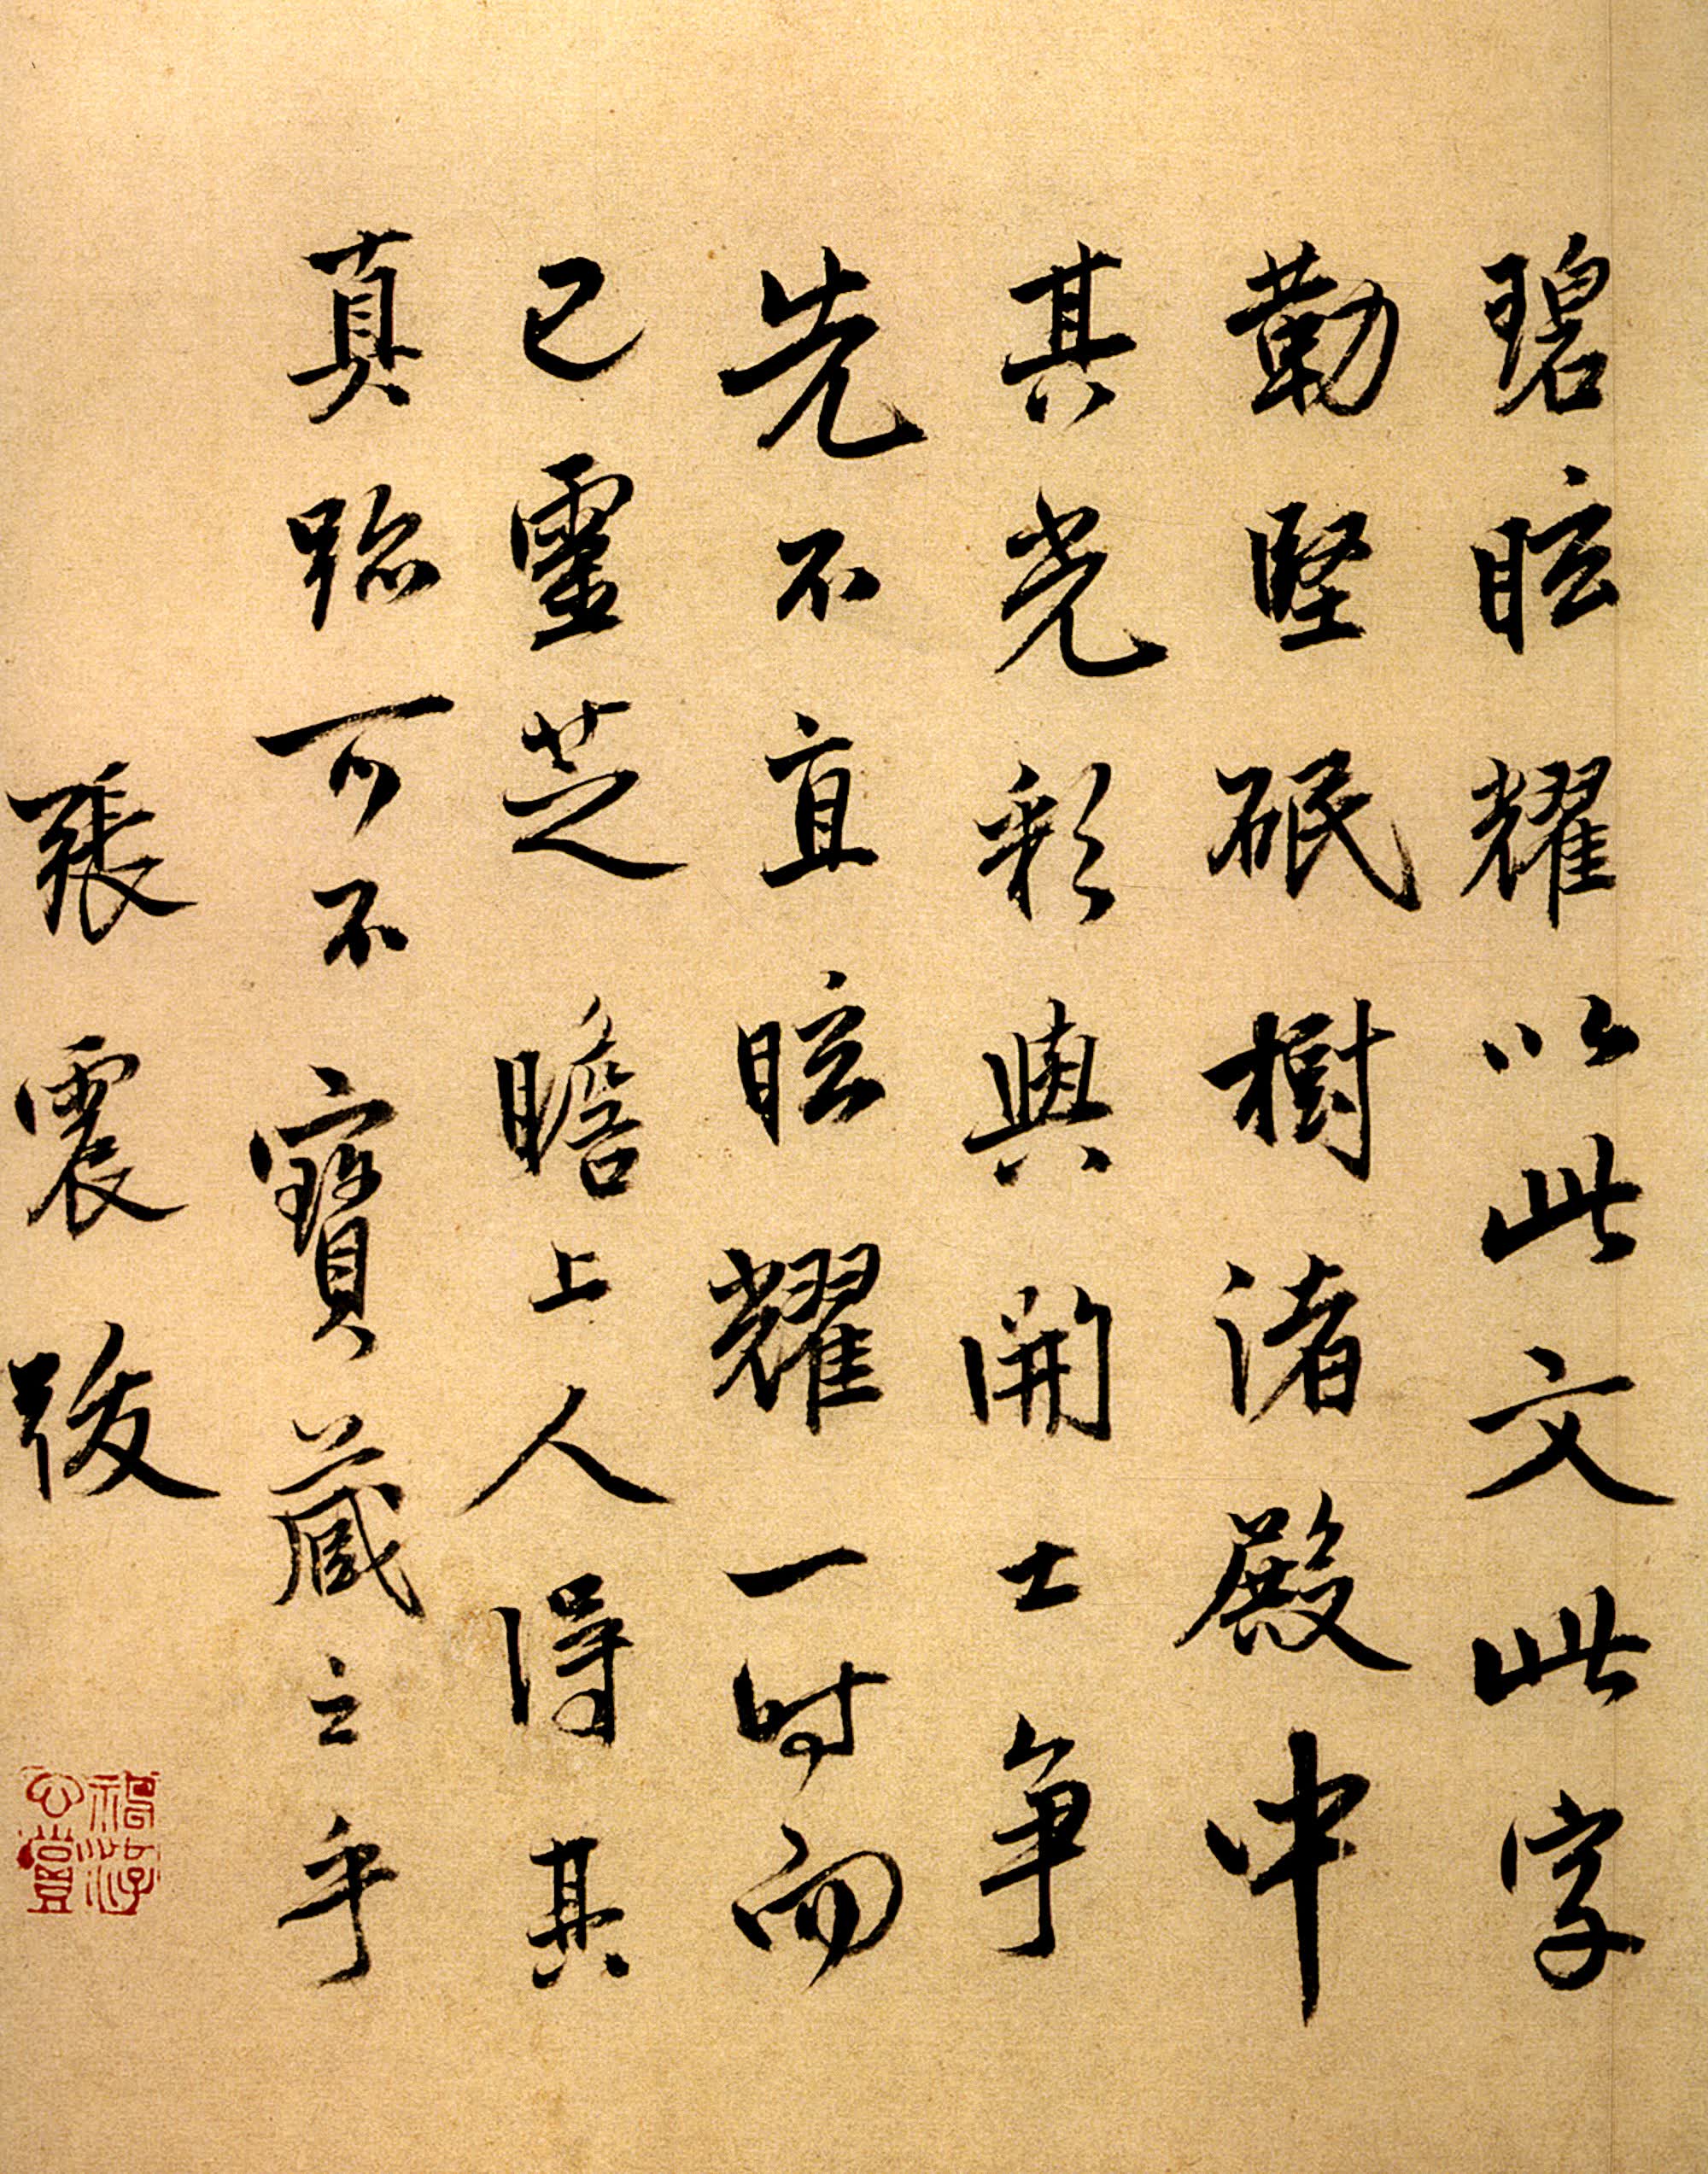 碧眩耀以此文此字
勒堅珉樹渚殿中
其光彩與開士爭
先不直眩耀一时而
已靈芝瞻上人得其
真跡可不寶藏之乎
張震跋